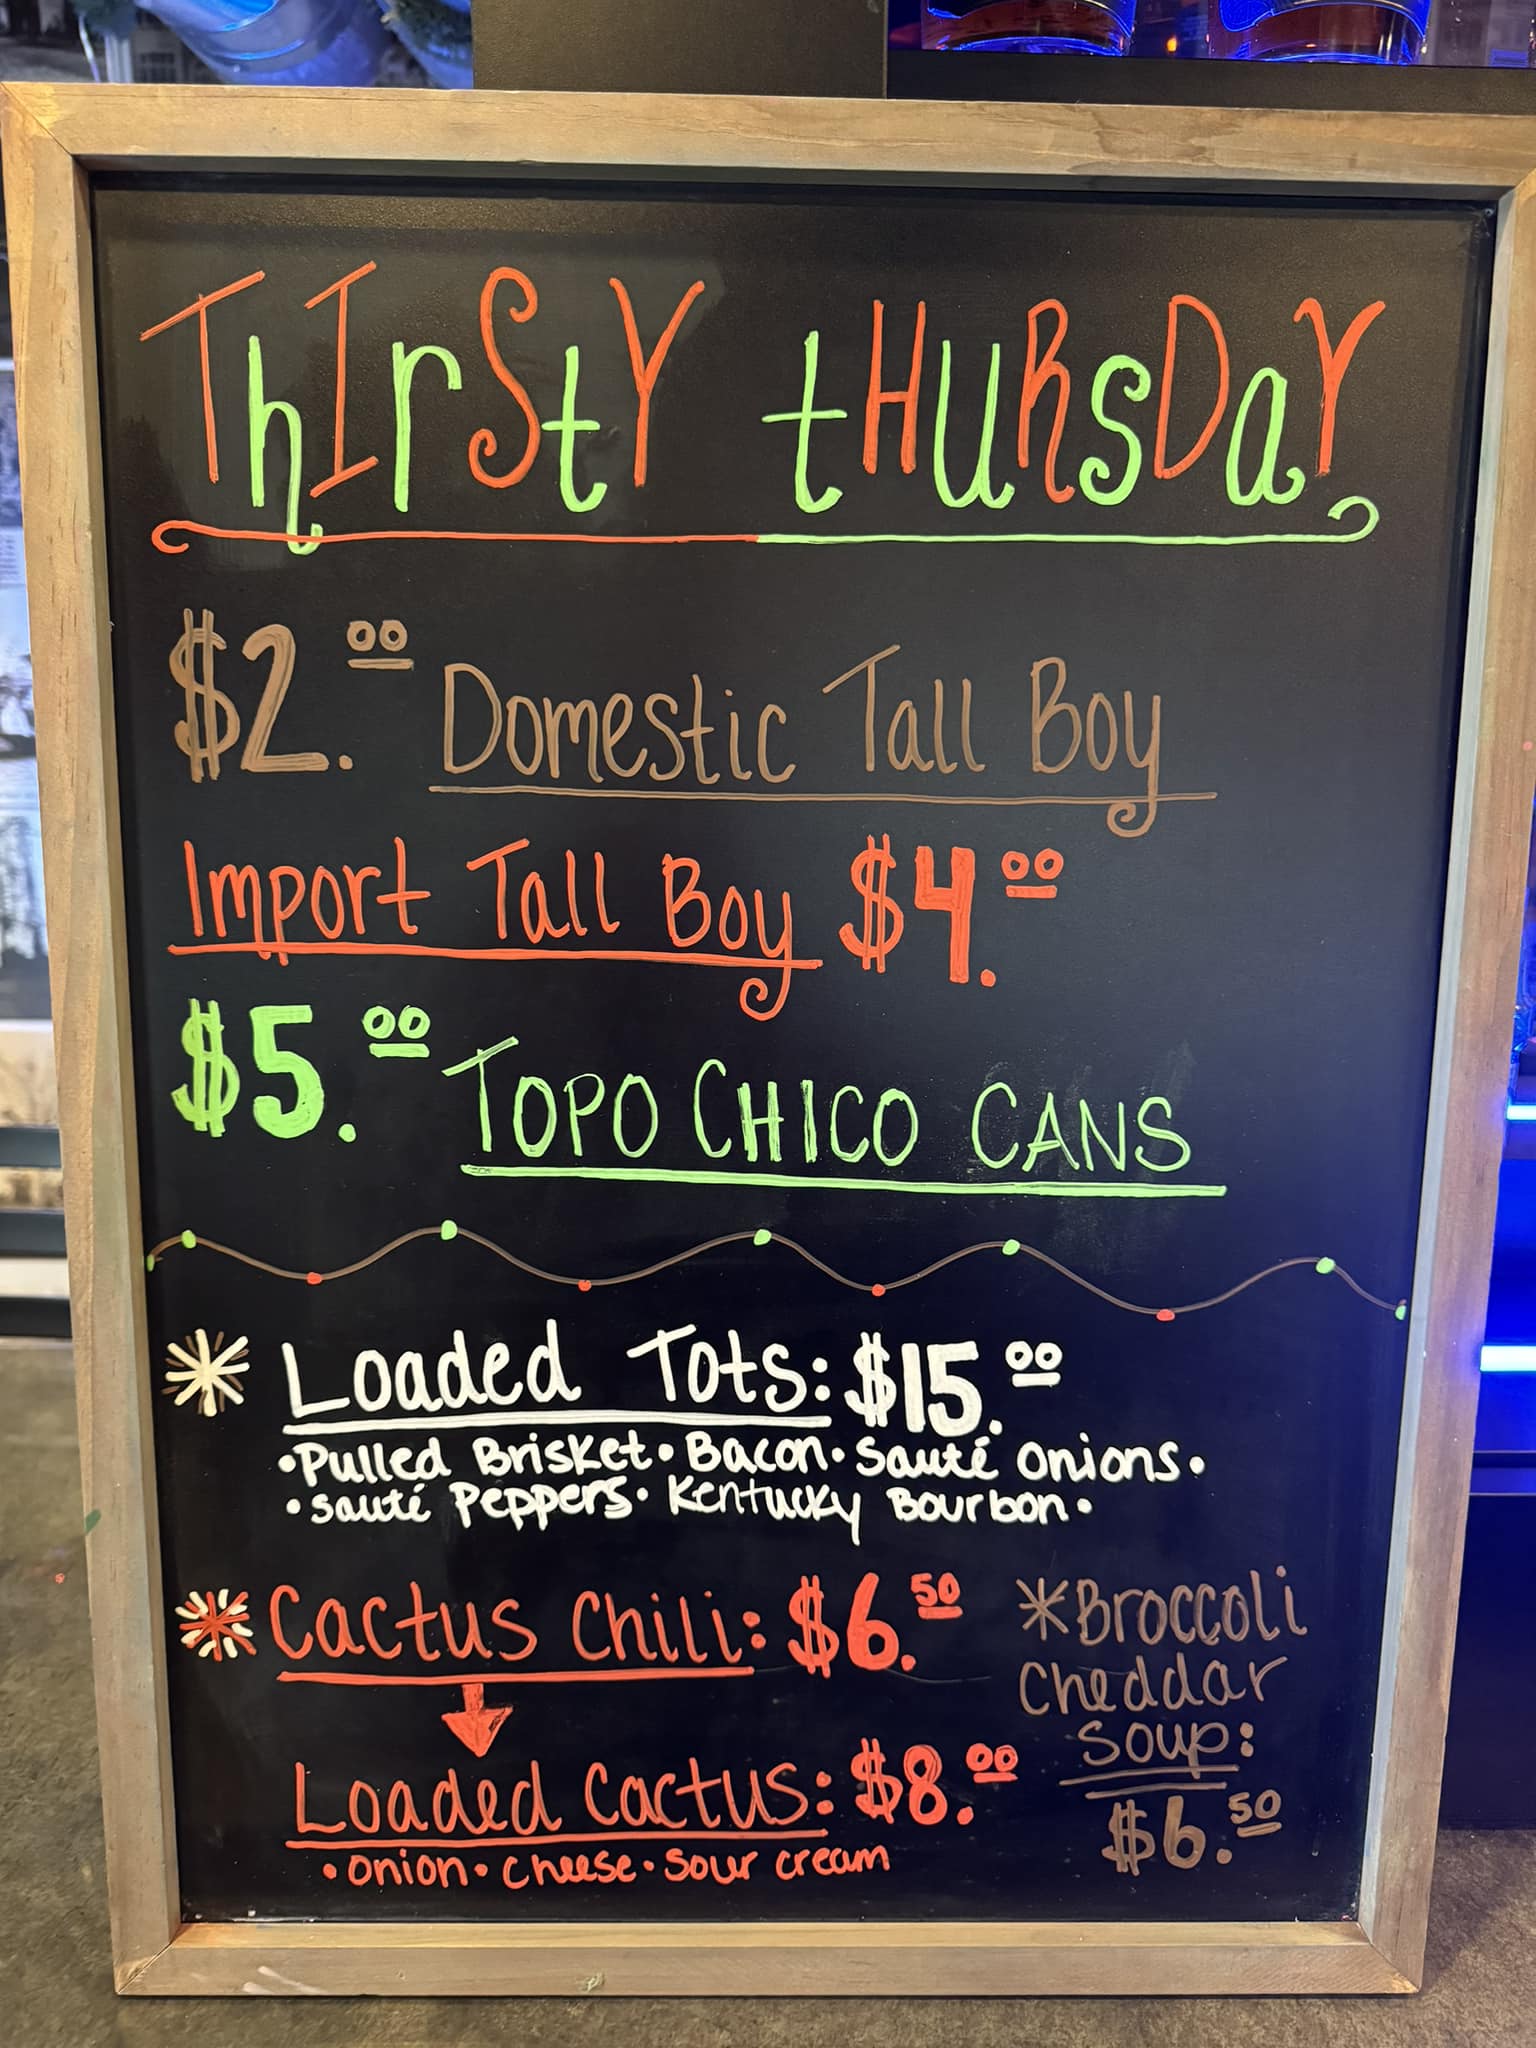 ThIrStY tHURsDaY
$2.00 Domestic Tall Boy
Import Tall Boy $4.00
$5.00 TOPO CHICO CANS
* Loaded Tots: $15.00
•Pulled Brisket•Bacon•Sauté Onions•
•Sauté Peppers•Kentucky Bourbon•
* Cactus Chili: $6.50
Loaded Cactus: $8.00
•Onion•Cheese•Sour cream
*Broccoli
Cheddar
Soup:
$6.50